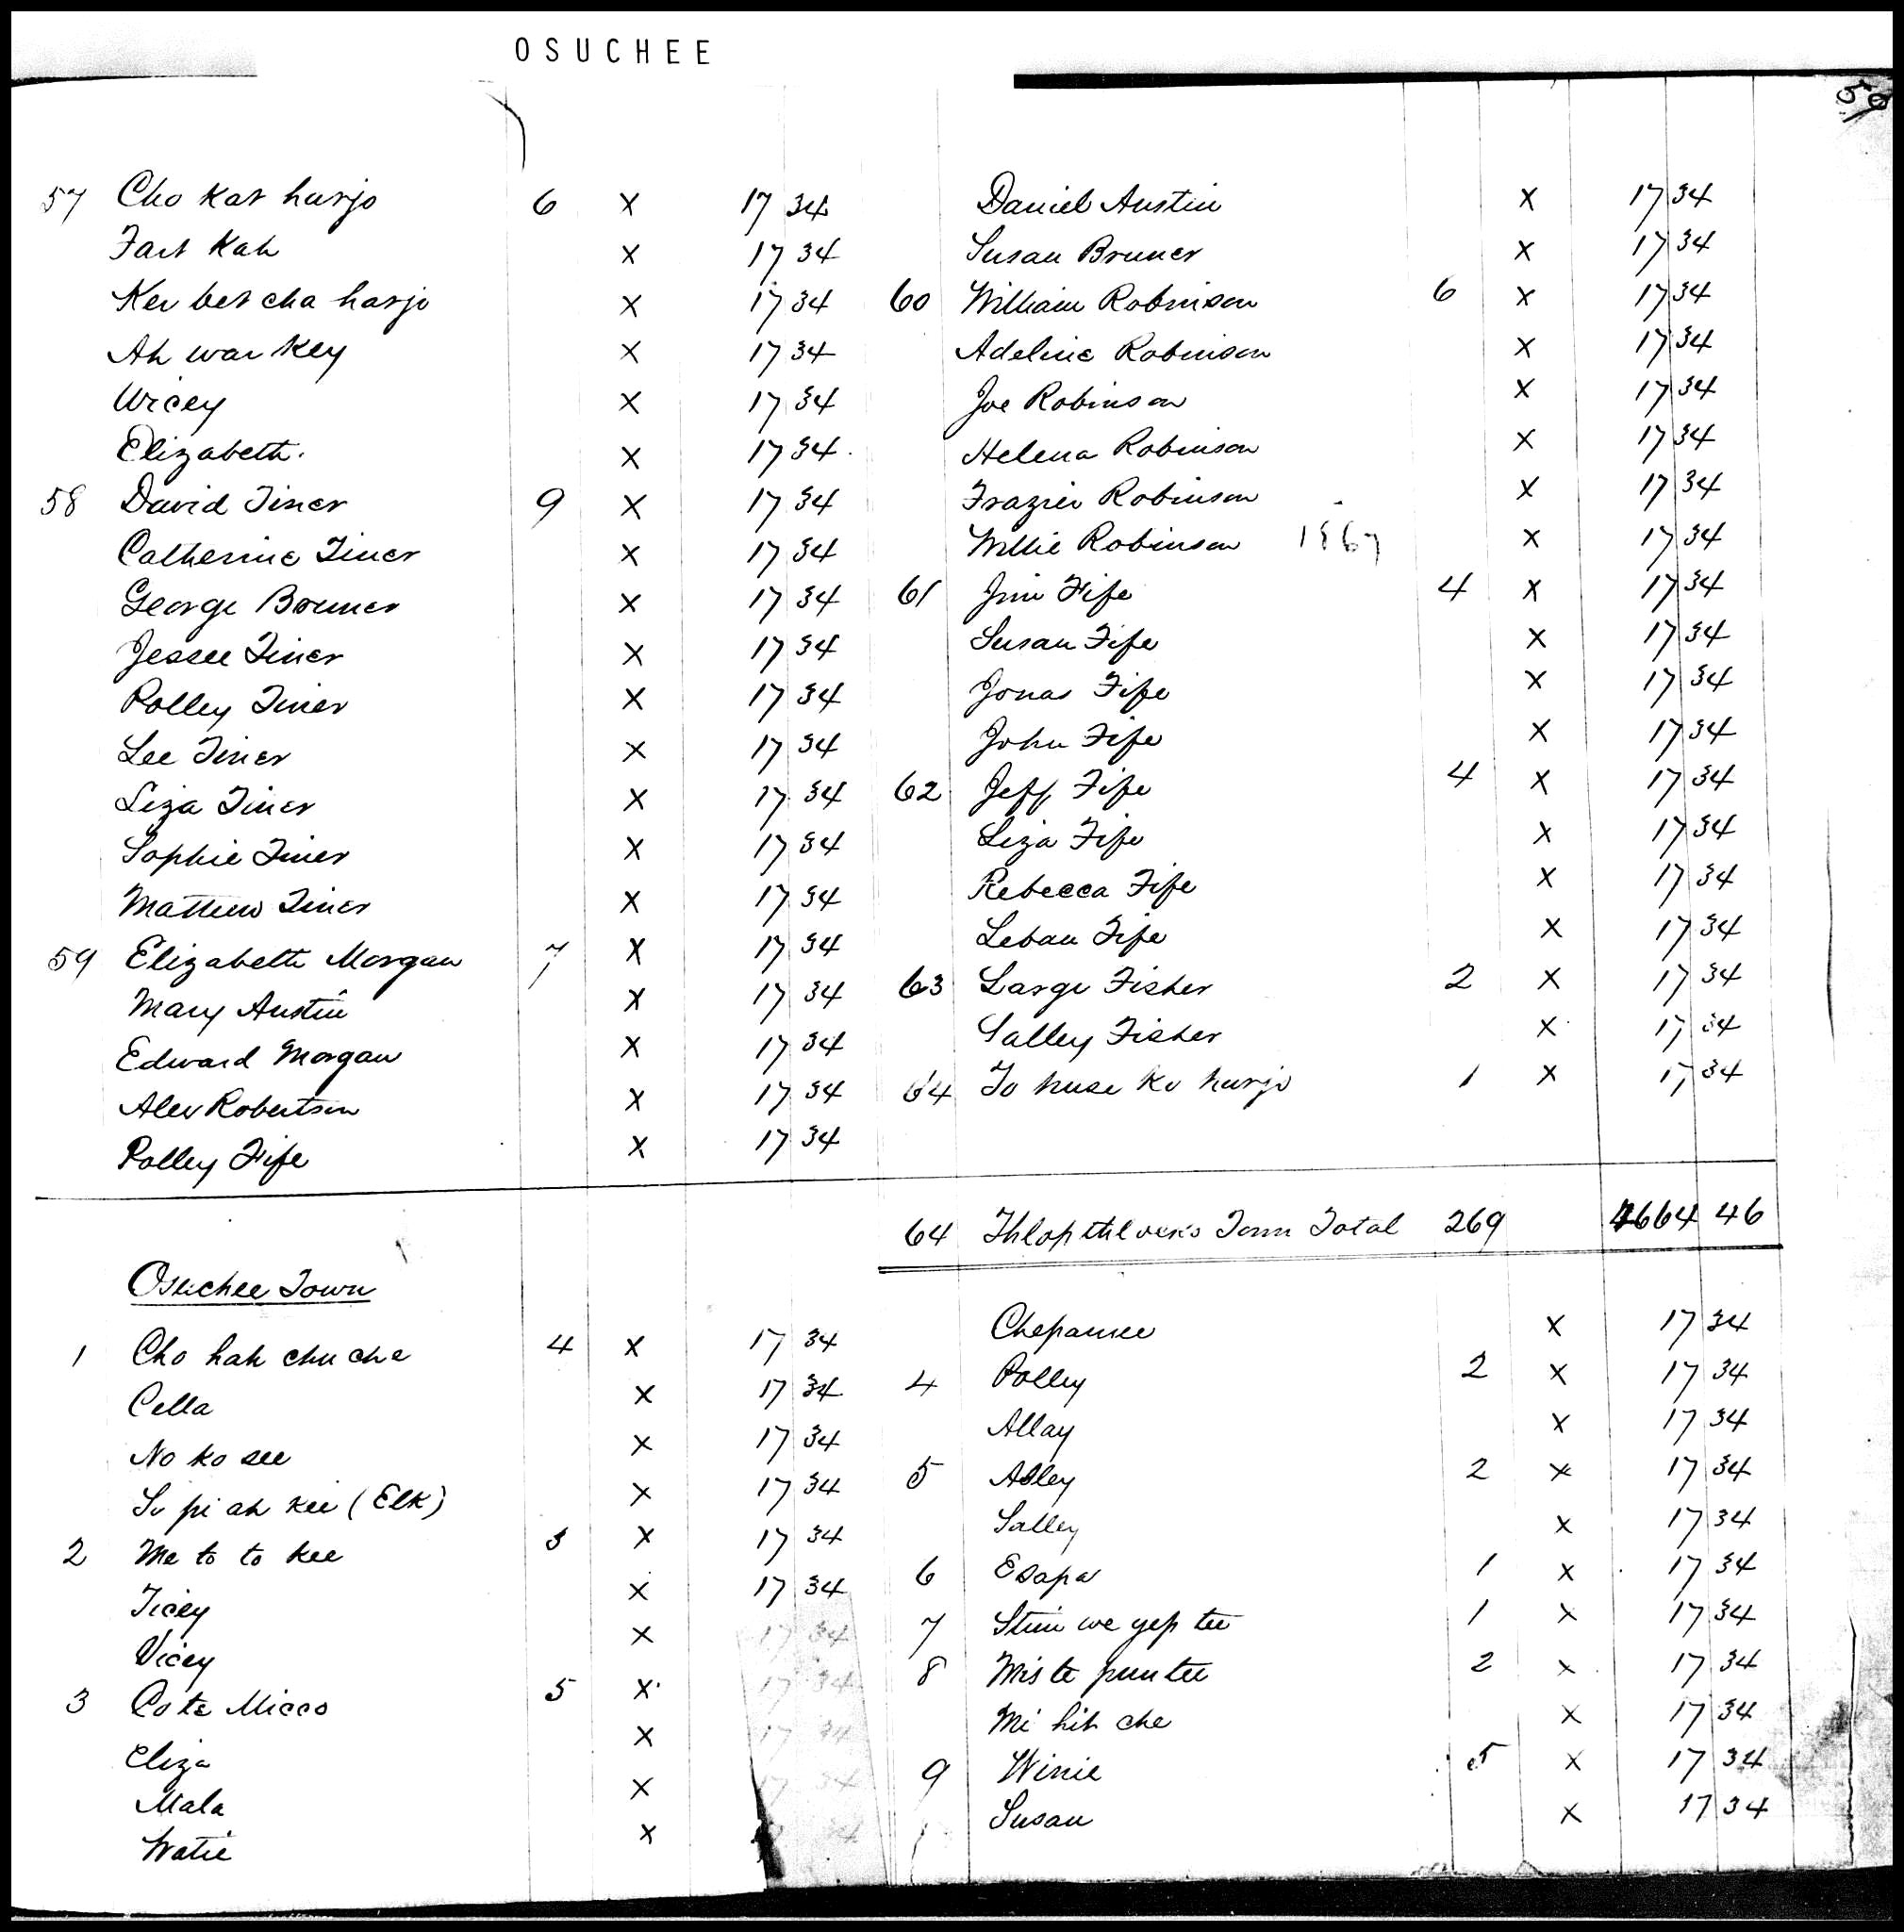 OSUCHEE
50
57 Cho Kar harjo 6 X 17 34
Fart Kah X 17 34
Ker bet cha harjo X 17 34
Ah war Key X 17 34
Wicey X 17 34
Elizabeth. X 17 34
58 David Tiner 9 X 17 34
Catherine Tiner X 17 34
George Bruner X 17 34
Jessee Tiner X 17 34
Polley Tiner X 17 34
Lee Tiner X 17 34
Liza Tiner X 17 34
Sophie Tiner X 17 34
Matthew Tiner X 17 34
59 Elizabeth Morgan 7 X 17 34
Mary Austin X 17 34
Edward Morgan X 17 34
Alex Robertson X 17 34
Polley Fife X 17 34
Daniel Austin X 17 34
Susan Bruner X 17 34
60 William Robinson 6 X 17 34
Adeline Robinson X 17 34
Joe Robinson X 17 34
Helena Robinson X 17 34
Frazier Robinson X 17 34
Willie Robinson 1867 X 17 34
61 Jim Fife 4 X 17 34
Susan Fife X 17 34
Jonas Fife X 17 34
John Fife X 17 34
62 Jeff Fife 4 X 17 34
Liza Fife X 17 34
Rebecca Fife X 17 34
Leban Fife X 17 34
63 Large Fisher 2 X 17 34
Salley Fisher X 17 34
64 To huse ko harjo 1 X 17 34
64 Town Total 269 4664 46
Osuchee Town
1 Cho hah chu che 4 X 17 34
Cella X 17 34
No ko see X 17 34
So pi ah kee (Elk) X 17 34
2 Me to to kee 3 X 17 34
Ticey X 17 34
Vicey X 17 34
3 Cote Micco 5 X 17 34
Eliza X 17 34
Mala X 17 34
Watie X 34
Chepanee X 17 34
4 Polley 2 X 17 34
Allay X 17 34
5 Asley 2 X 17 34
Salley X 17 34
6 Esapa 1 X 17 34
7 Stim we yep tee 1 X 17 34
8 Miste puntee 2 X 17 34
Mi hit che X 17 34
9 Winie 5 X 17 34
Susan X 17 34